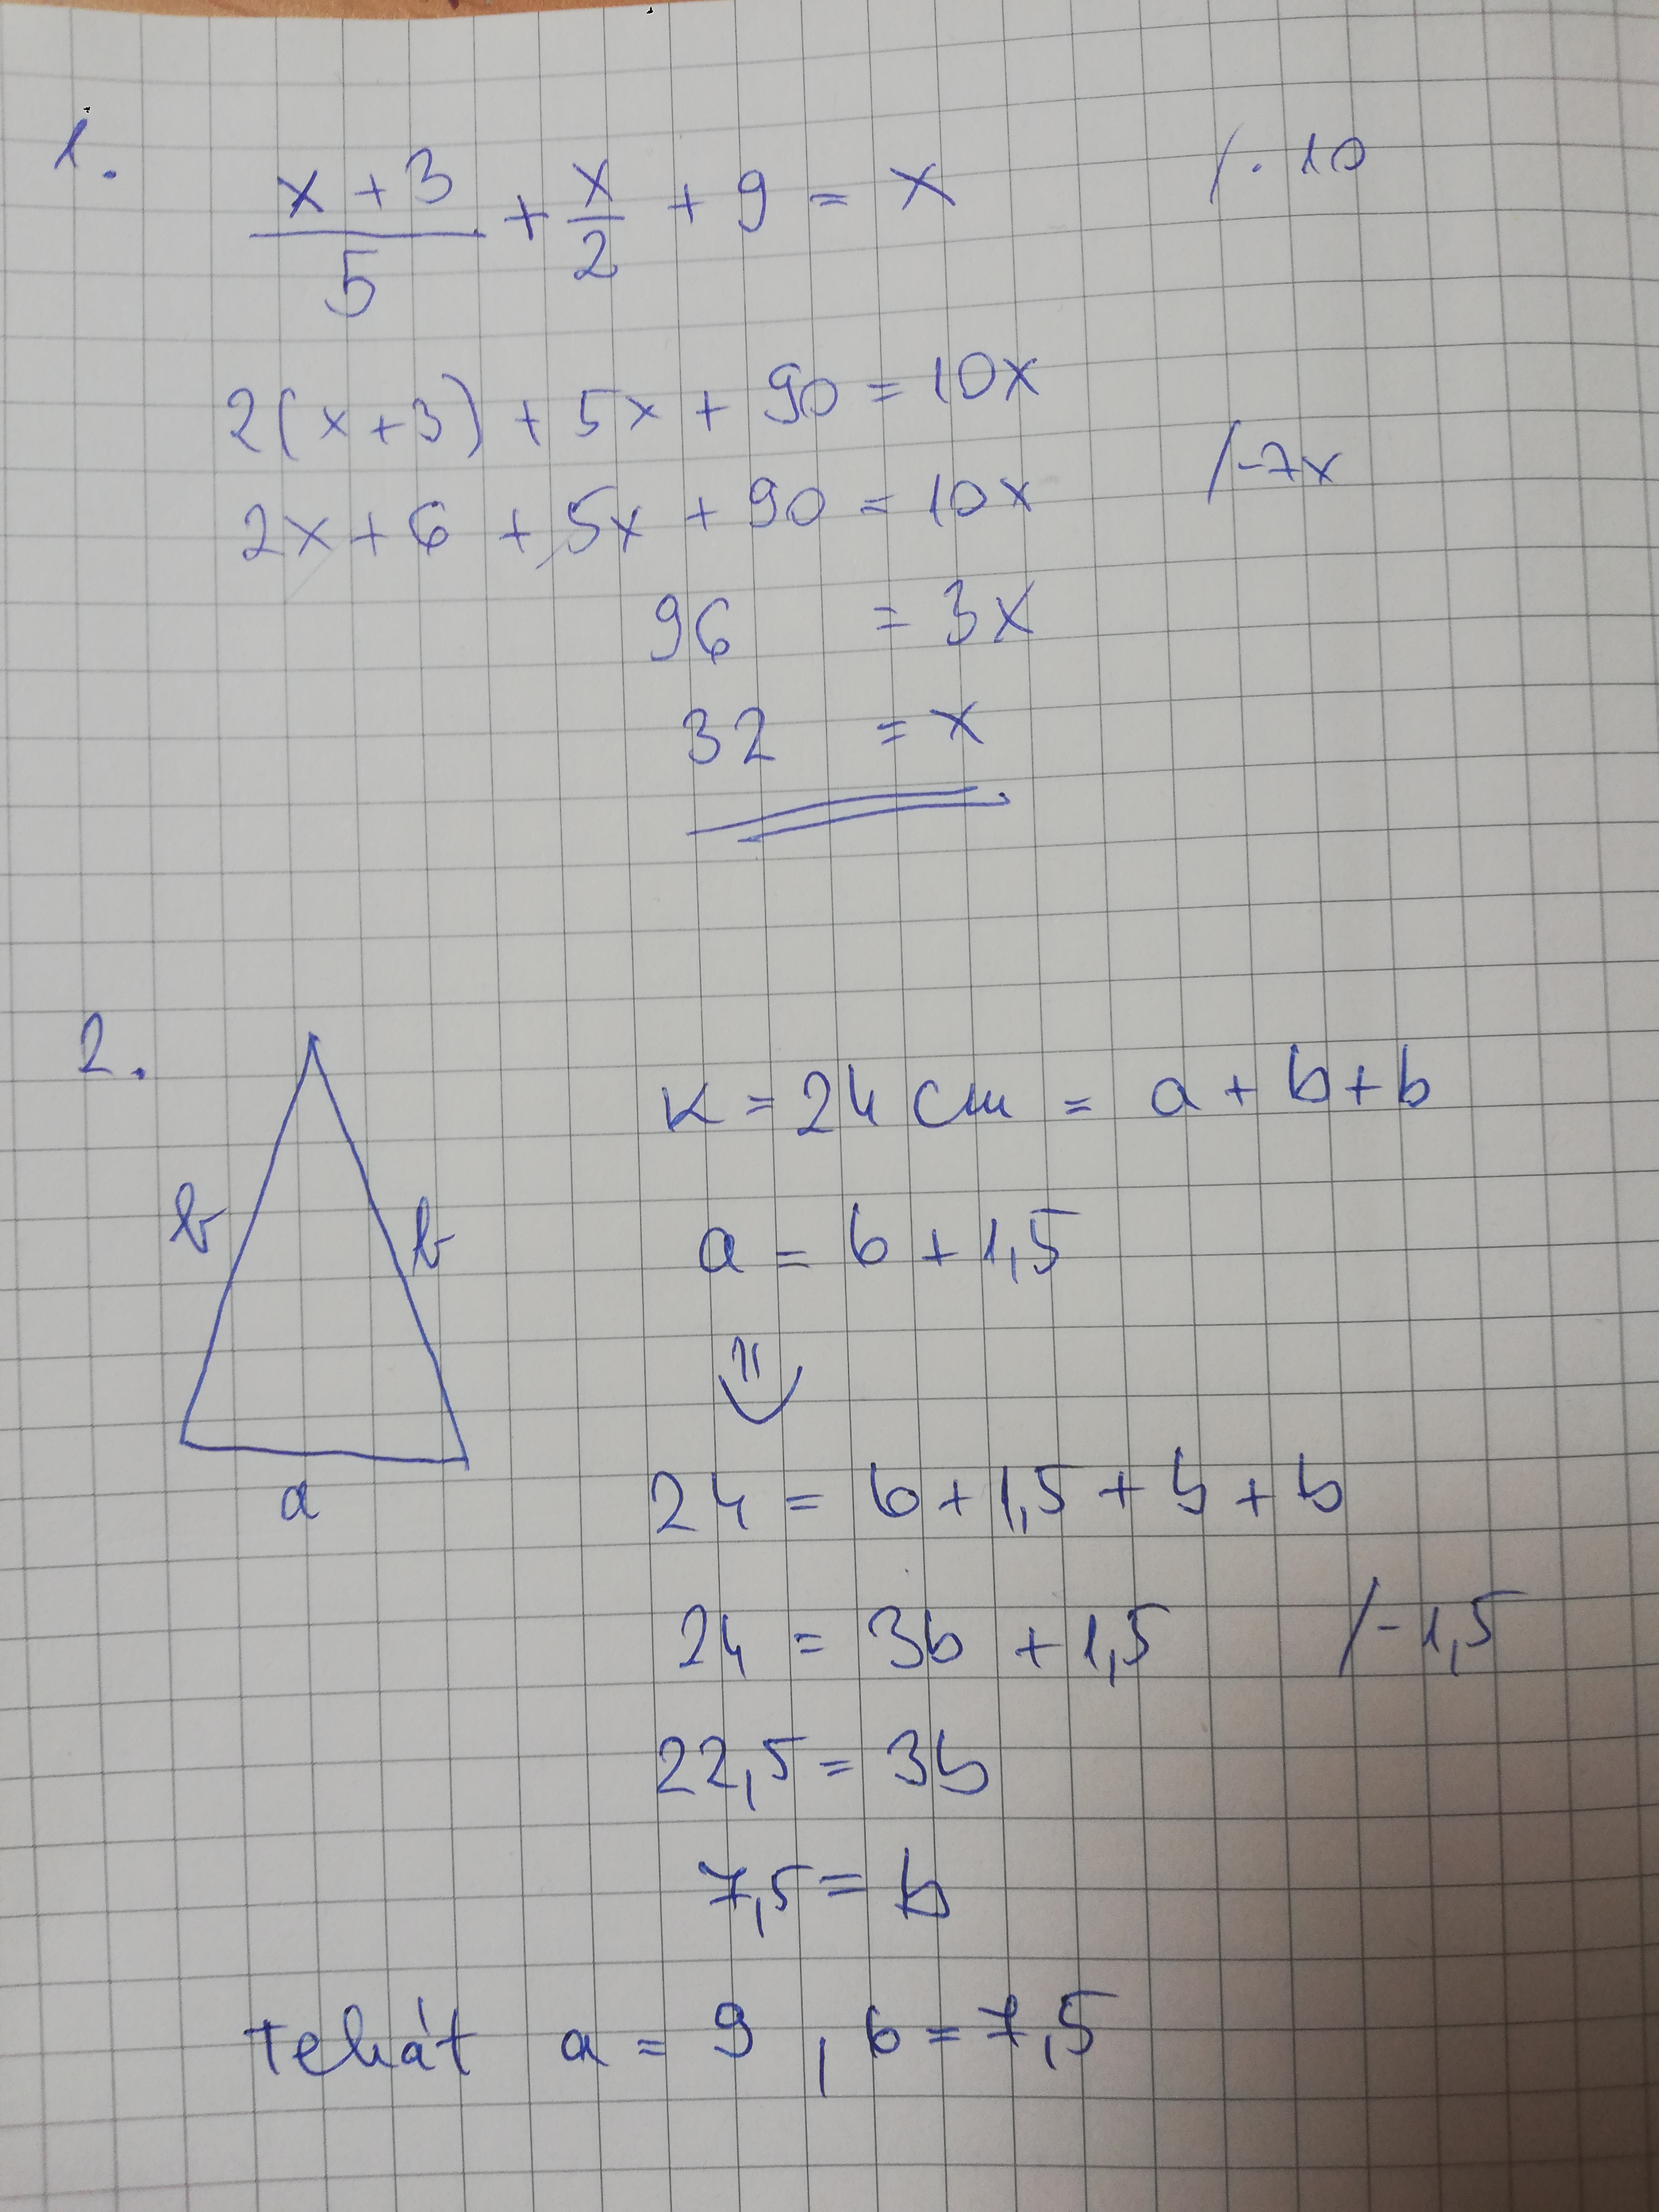 1.
(x+3)/5 + x/2 + 9 = x /·10
2(x+3) + 5x + 90 = 10x
2x + 6 + 5x + 90 = 10x /-7x
96 = 3x
32 = x
2.
K = 24 cm = a + b + b
a = b + 1,5
b b
a
24 = b + 1,5 + b + b
24 = 3b + 1,5 /-1,5
22,5 = 3b
7,5 = b
Tehát a = 9, b = 7,5